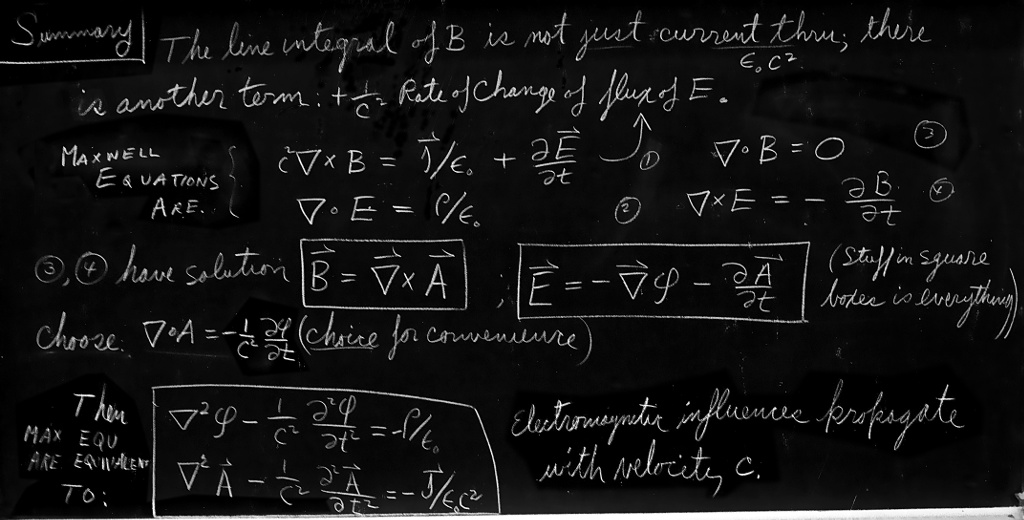 Summary The line integral of B is not just current thru; there
ε₀c²
is another term: + 1/c² Rate of Change of flux of E.
MAXWELL EQUATIONS ARE.
c²∇×B = j⃗/ε₀ + ∂E⃗/∂t ① ∇·B = 0 ③
∇·E = ρ/ε₀ ② ∇×E = - ∂B/∂t ④
③, ④ have solution B⃗ = ∇⃗×A⃗ ; E⃗ = -∇⃗φ - ∂A⃗/∂t (Stuff in square
boxes is everything)
choose. ∇·A = -1/c² ∂φ/∂t (choice for convenience)
Then
MAX EQU
ARE EQUIVALENT
TO:
∇²φ - 1/c² ∂²φ/∂t² = -ρ/ε₀
∇²A⃗ - 1/c² ∂²A⃗/∂t² = -j⃗/ε₀c²
Electromagnetic influences propagate
with velocity c.